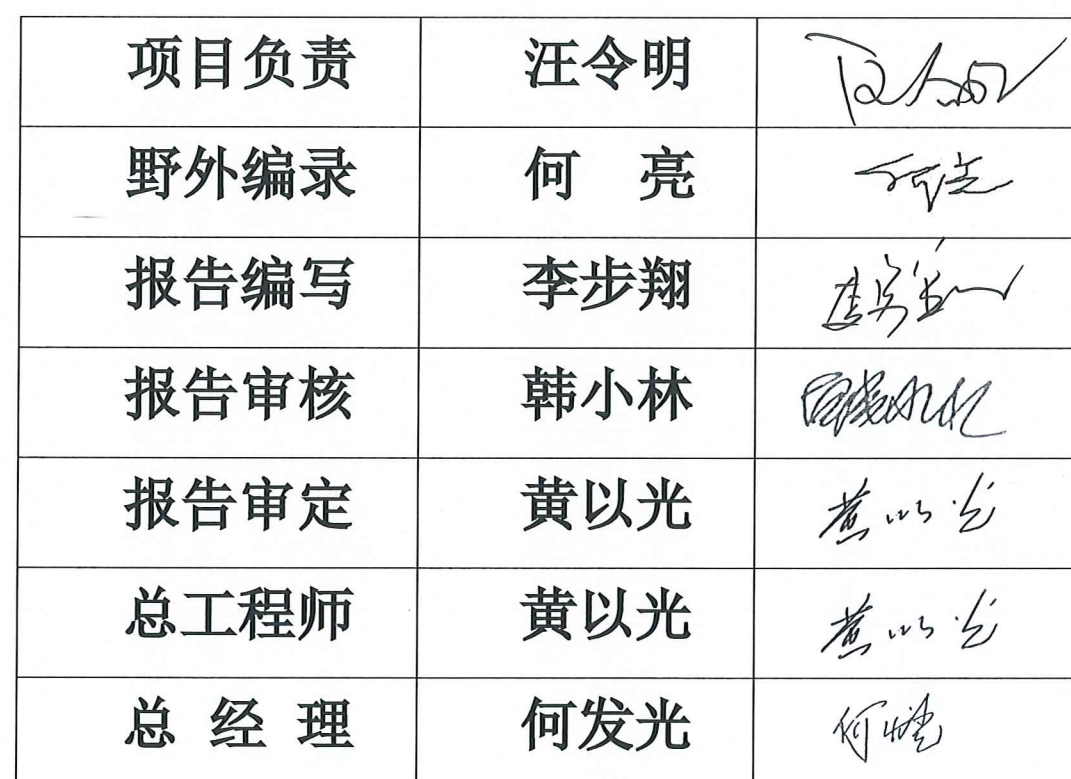 项目负责 汪令明 汪令明
野外编录 何 亮 何亮
报告编写 李步翔
报告审核 韩小林 韩小林
报告审定 黄以光 黄以光
总工程师 黄以光 黄以光
总 经 理 何发光